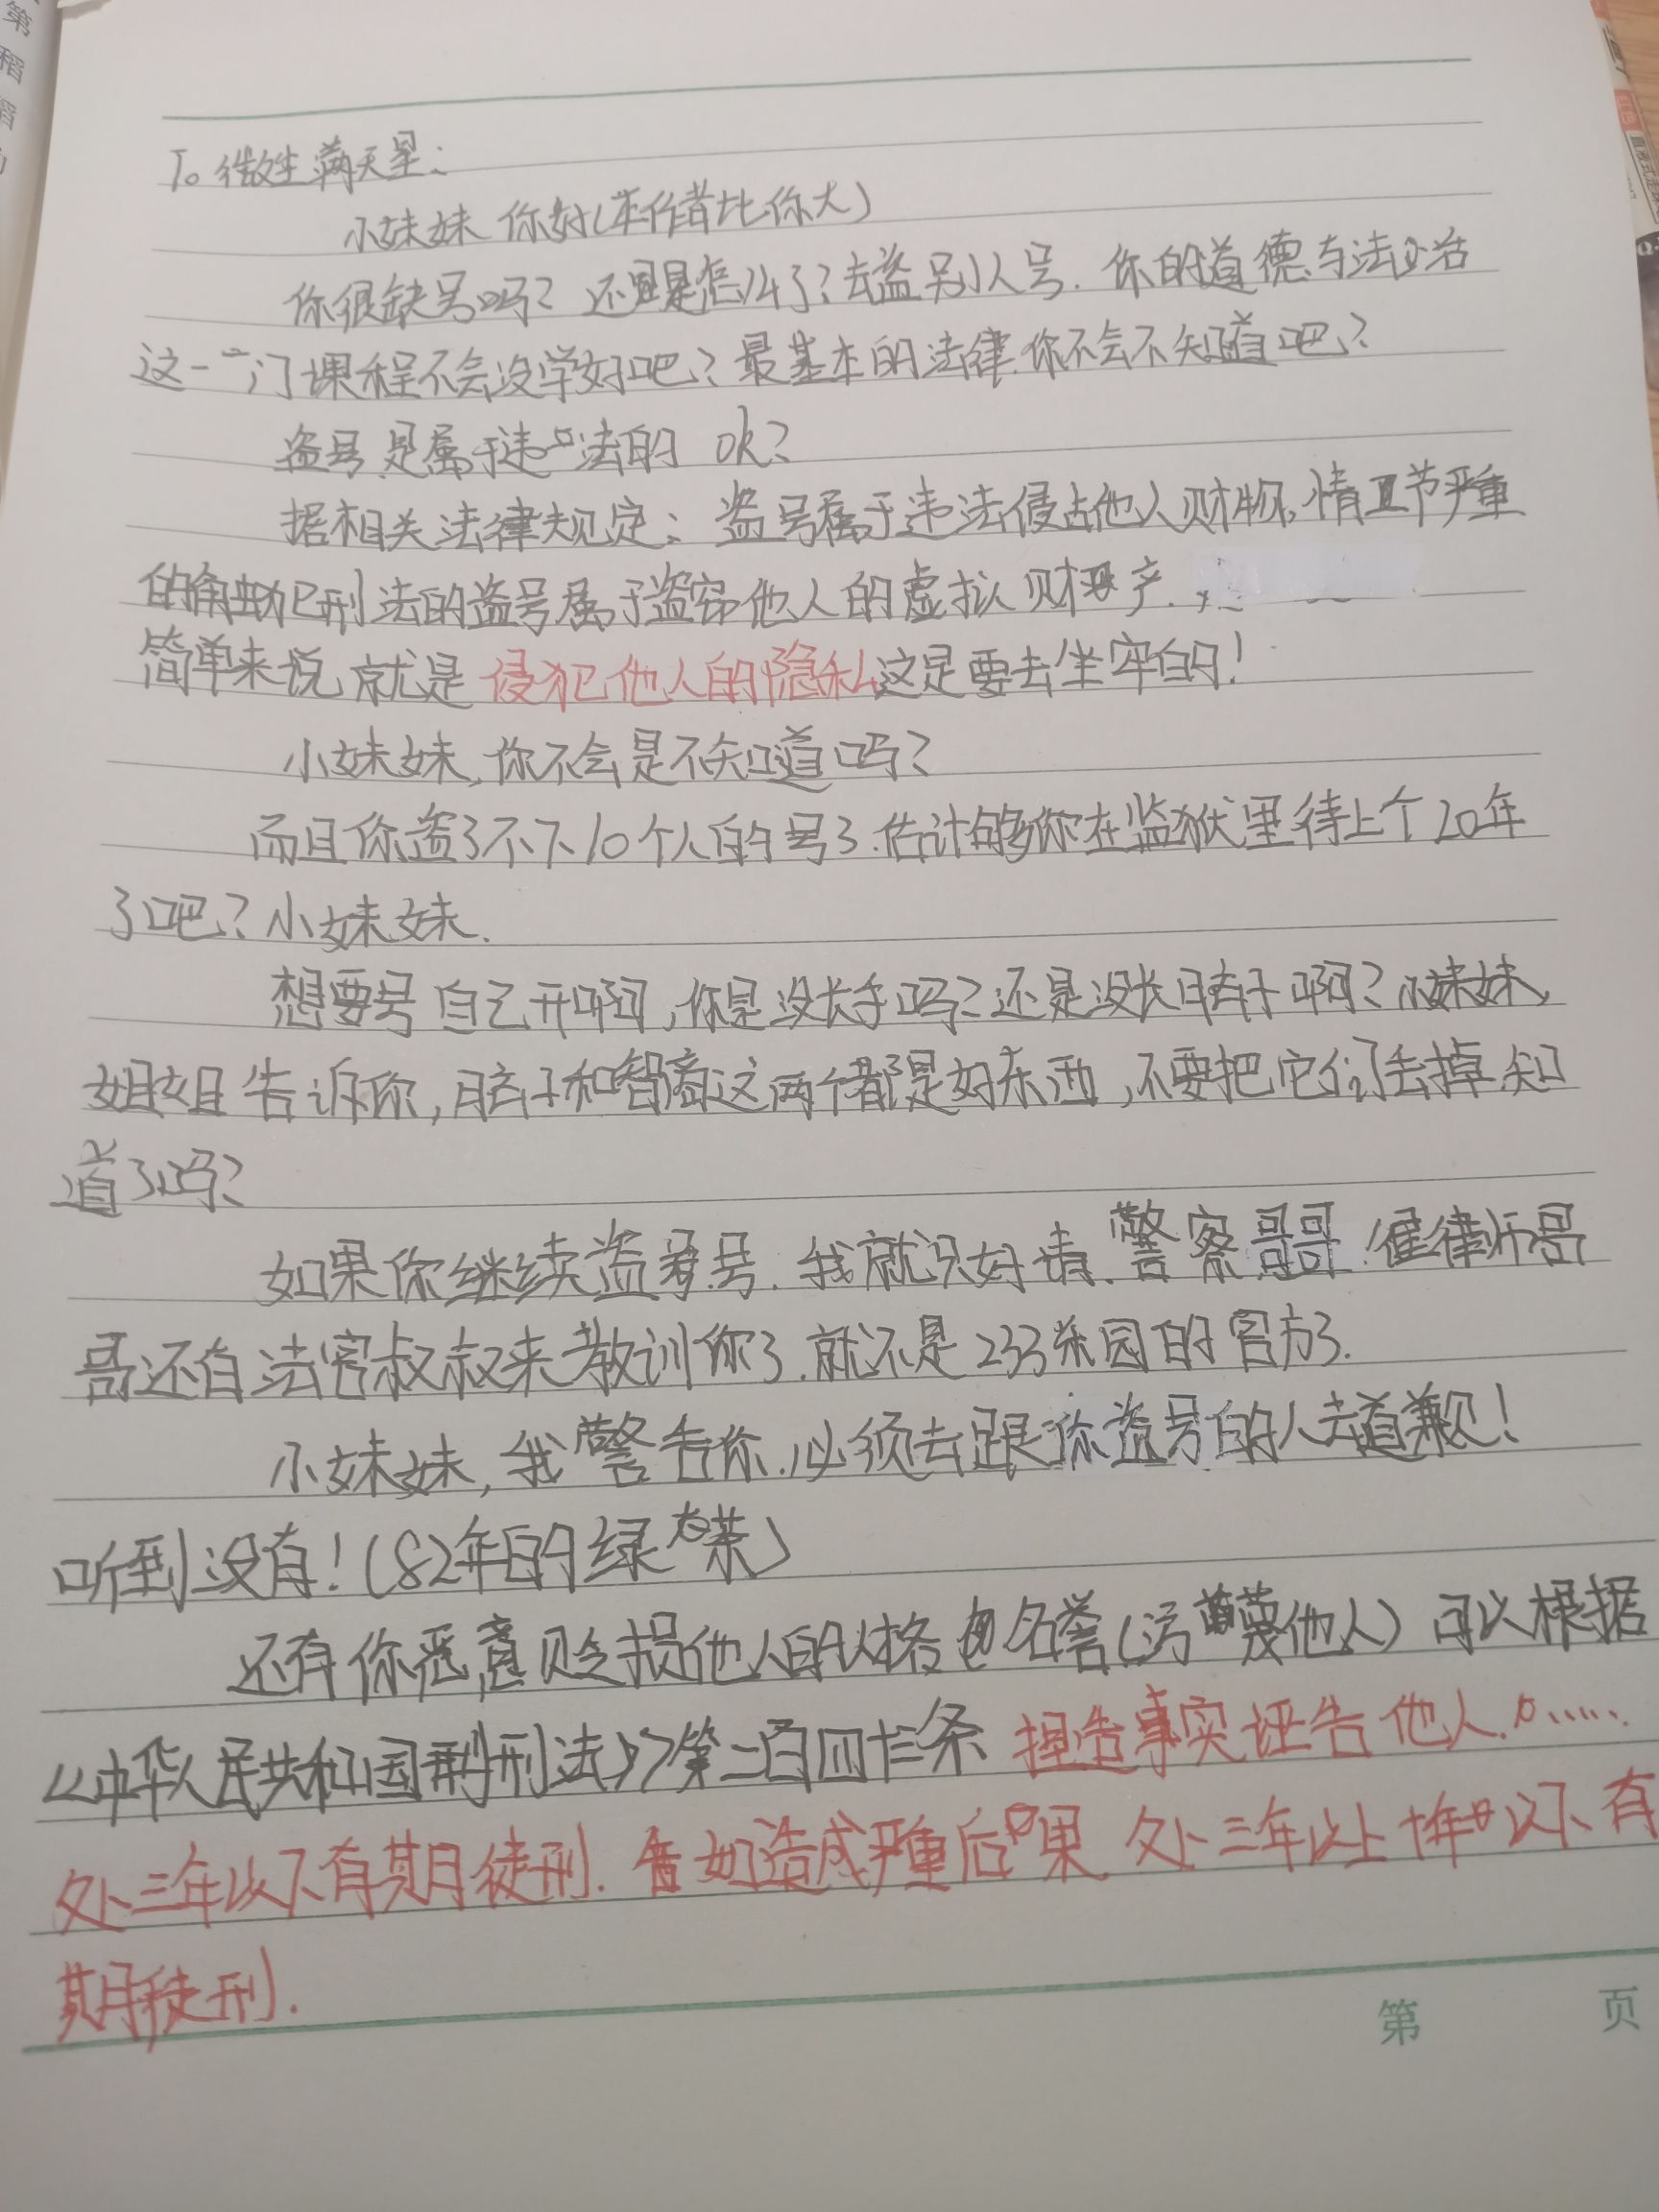 To 微生满天星:
小妹妹你好(本作者比你大)
你很缺号吗? 还是怎么了?去盗别人号.你的道德与法治
这一门课程不会没学好吧?最基本的法律你不会不知道吧?
盗号是属于违法的 ok?
据相关法律规定: 盗号属于违法侵占他人财物,情节严重
的触犯刑法的盗号属于盗窃他人的虚拟财产.
简单来说,就是侵犯他人的隐私这是要去坐牢的!
小妹妹,你不会是不知道吗?
而且你盗了不下10个人的号了.估计够你在监狱里待上个20年
了吧?小妹妹.
想要号自己开啊,你是没长手吗?还是没长脑子啊?小妹妹,
姐姐告诉你,脑子和智商这两个都是好东西,不要把它们丢掉知
道了吗?
如果你继续盗号.我就只好请.警察哥哥.律师哥
哥还有法官叔叔来教训你了.就不是233乐园的官方了.
小妹妹,我警告你.必须去跟你盗号的人去道歉!
听到没有!(82年的绿茶)
还有你恶意贬损他人的人格名誉(污蔑他人)可以根据
《中华人民共和国刑法》第二百四十三条 捏造事实诬告他人.……
处三年以下有期徒刑.如造成严重后果.处三年以上十年以下有
期徒刑.
第 页